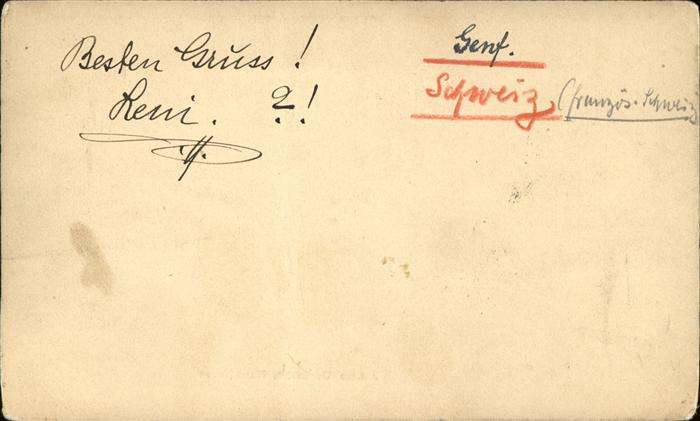 Besten Gruss!
Reni. ?!
Genf.
Schweiz
(französ. Schweiz